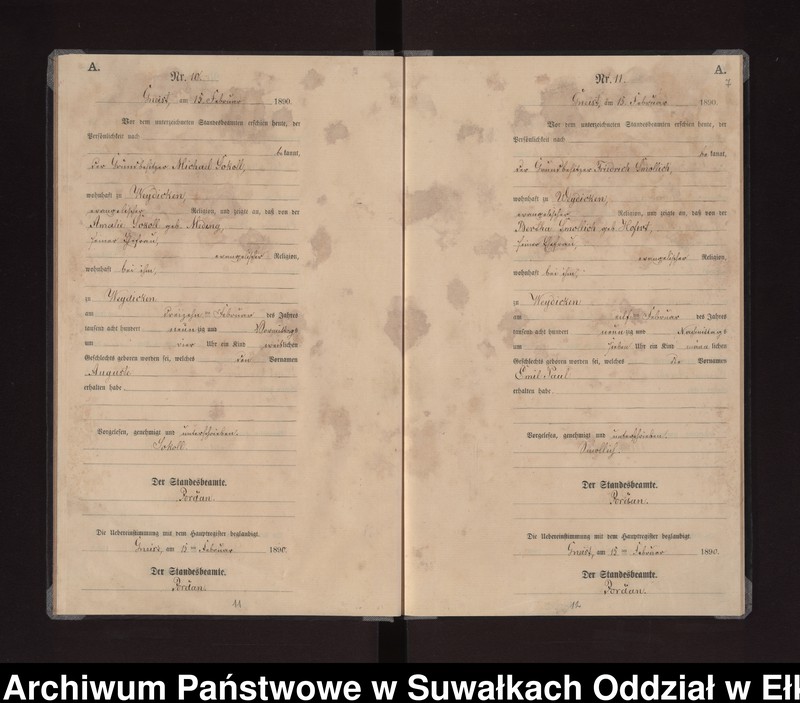 A.
Nr. 10.
am 15 Februar 1890.
Vor dem unterzeichneten Standesbeamten erschien heute, der
Persönlichkeit nach
be kannt,
der Grundbesitzer Michael Sokoll,
wohnhaft zu Weydicken,
evangelischer Religion, und zeigte an, daß von der
Amalie Sokoll geb.
seiner Ehefrau,
evangelischer Religion,
wohnhaft bei ihm,
zu Weydicken
am dreizehn ten Februar des Jahres
tausend acht hundert neun zig und Vormittags
um vier Uhr ein Kind weiblichen
Geschlechts geboren worden sei, welches den Vornamen
Auguste
erhalten habe
Vorgelesen, genehmigt und unterschrieben.
Sokoll.
Der Standesbeamte.
Jordan.
Die Uebereinstimmung mit dem Hauptregister beglaubigt.
am 15 ten Februar 1890.
Der Standesbeamte.
Jordan.
11
A.
7
Nr. 11.
am 15 Februar 1890.
Vor dem unterzeichneten Standesbeamten erschien heute, der
Persönlichkeit nach
be kannt,
der Grundbesitzer Friedrich Smollich,
wohnhaft zu Weydicken,
evangelischer Religion, und zeigte an, daß von der
Bertha Smollich geb.
seiner Ehefrau,
evangelischer Religion,
wohnhaft bei ihm,
zu Weydicken
am elf ten Februar des Jahres
tausend acht hundert neun zig und Nachmittags
um sieben Uhr ein Kind männ lichen
Geschlechts geboren worden sei, welches die Vornamen
Emil Paul
erhalten habe.
Vorgelesen, genehmigt und unterschrieben.
Smollich.
Der Standesbeamte.
Jordan.
Die Uebereinstimmung mit dem Hauptregister beglaubigt.
am 15 ten Februar 1890.
Der Standesbeamte.
Jordan.
12
Archiwum Państwowe w Suwałkach Oddział w Ełk